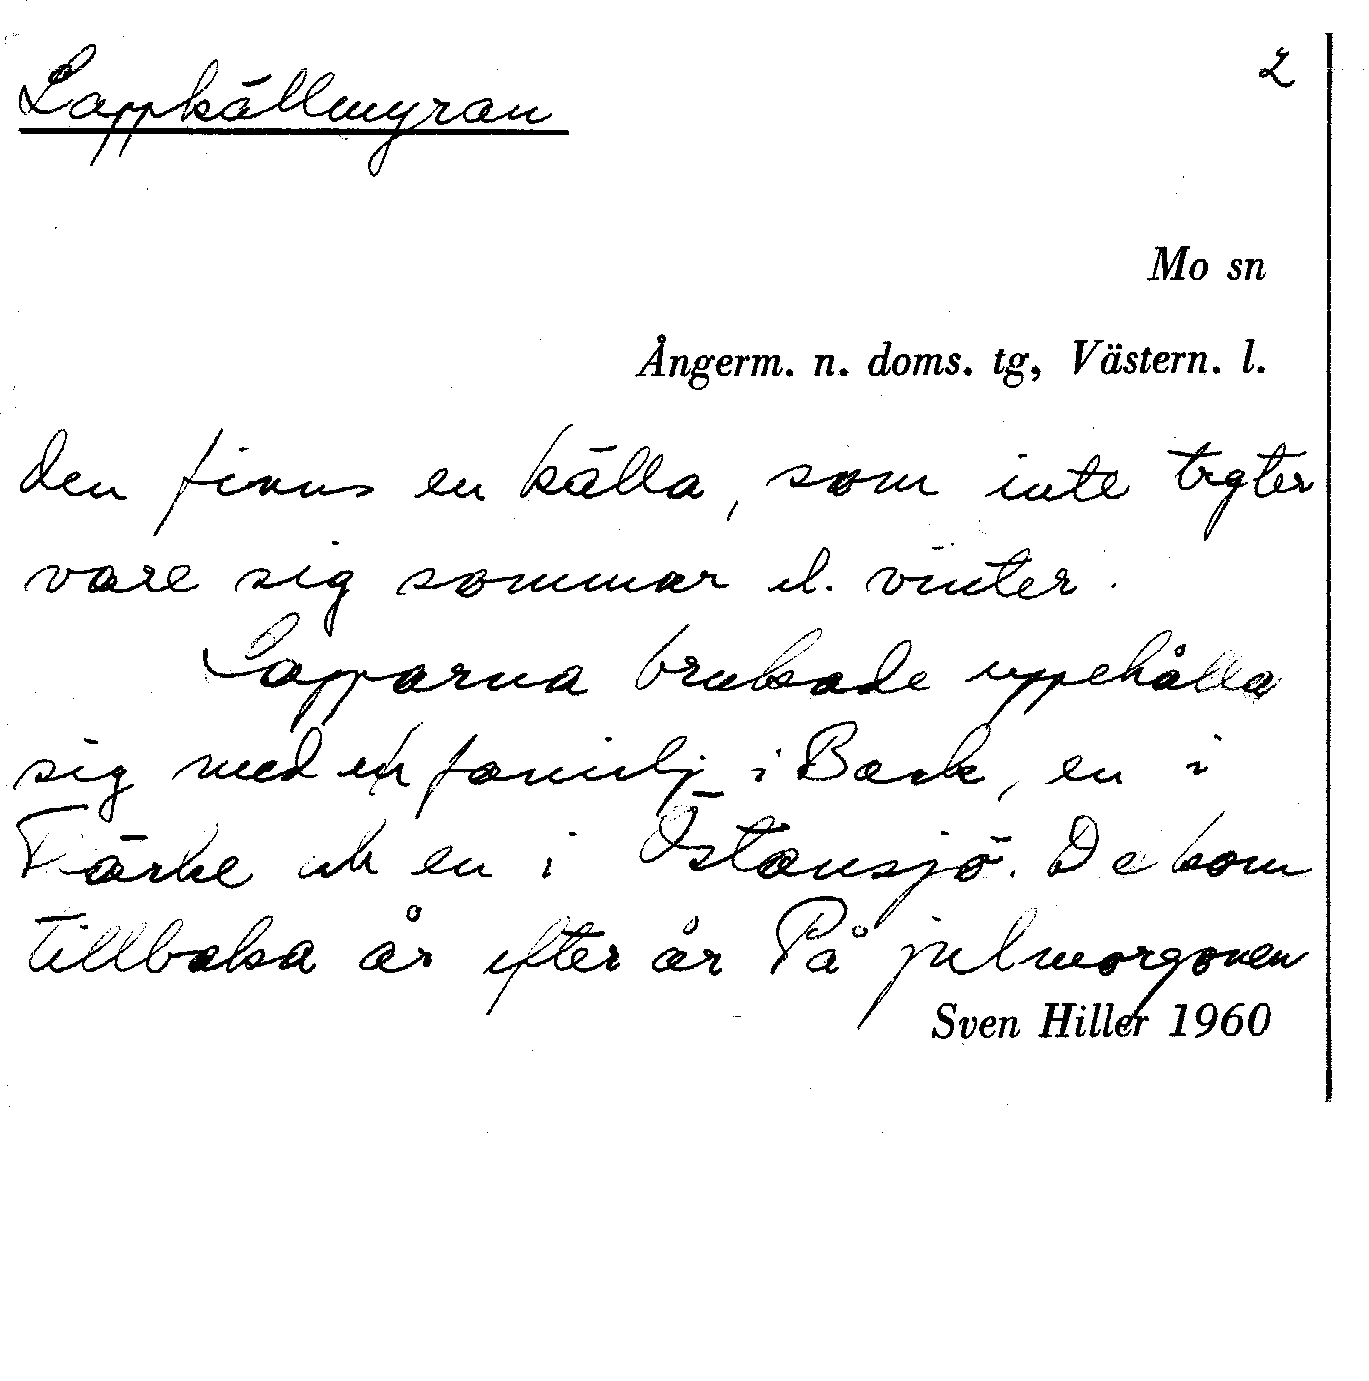 Lappkällmyran
2
Mo sn
Ångerm. n. doms. tg, Västern. l.
den finns en källa, som inte tryter
vare sig sommar el. vinter.
Lapparna brukade uppehålla
sig med en familj i Back, en i
Färke och en i Östansjö. De kom
tillbaka år efter år På julmorgonen
Sven Hiller 1960